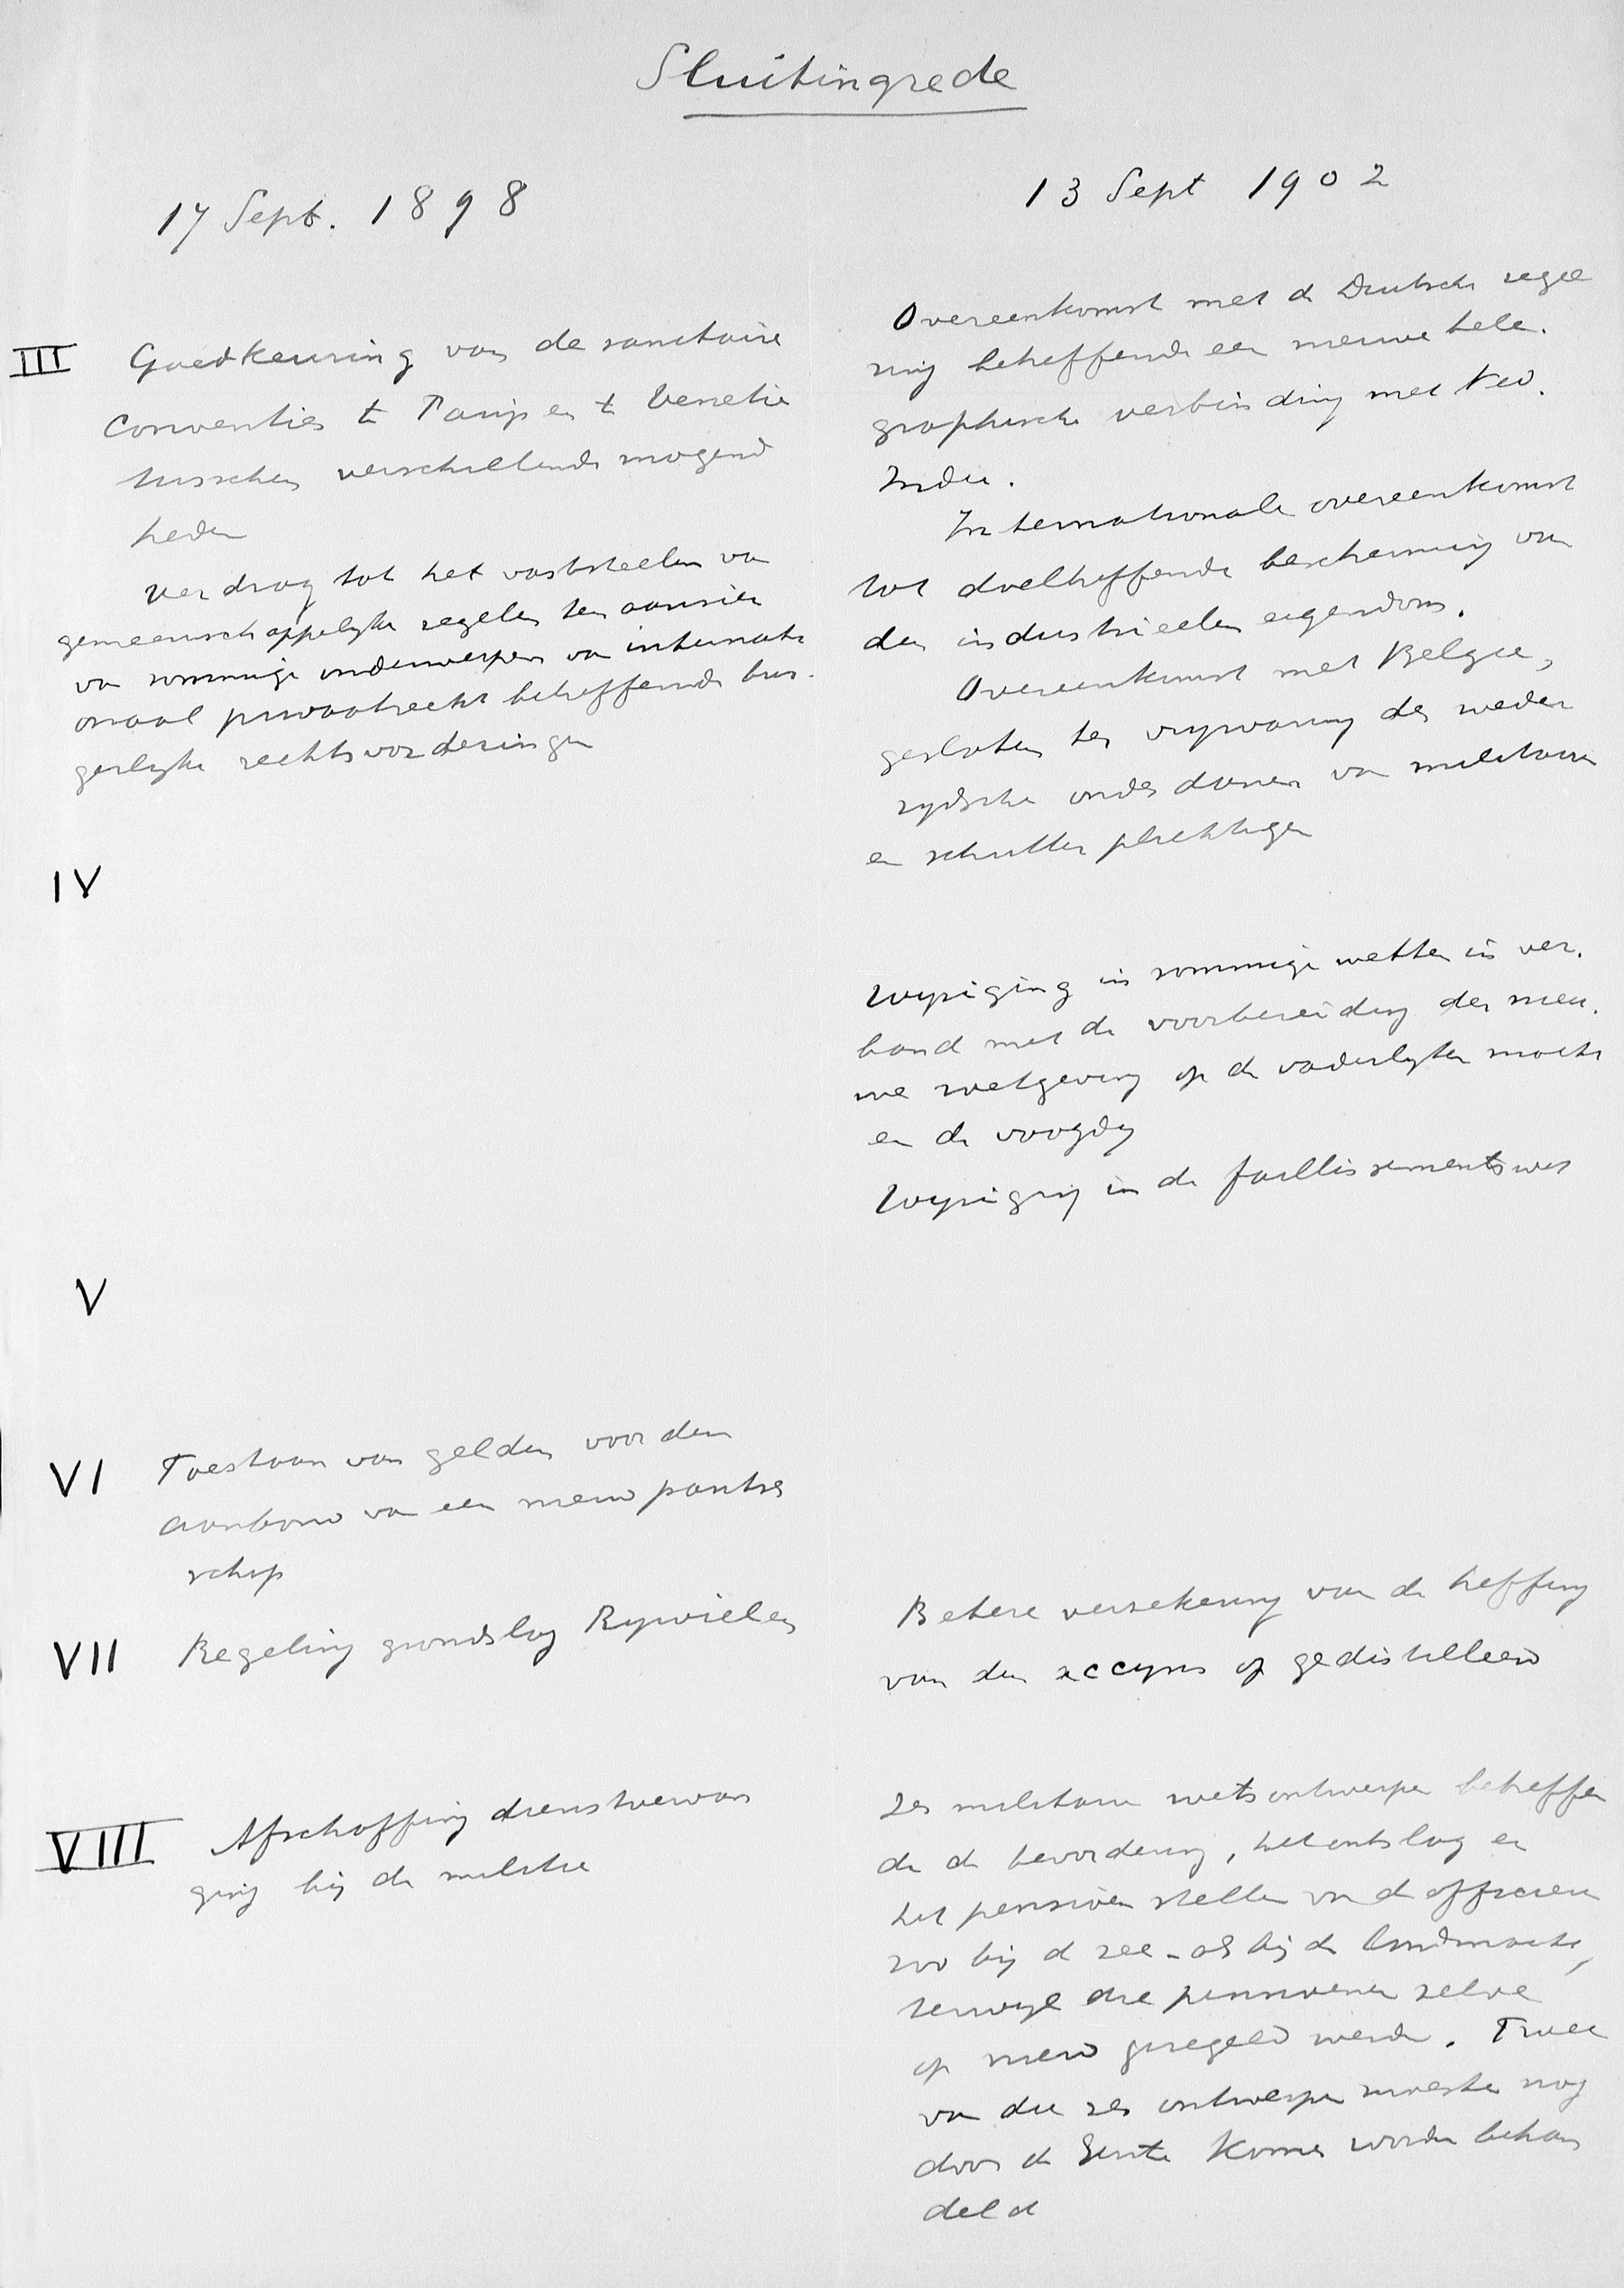 Sluitingrede
17 Sept. 1898
III Goedkeuring van de sanitaire
Conventies te Parijs en te Venetie
tusschen verschillende mogend
heden
Verdrag tot het vaststellen van
gemeenschappelijke regelen ten aanzien
van sommige onderwerpen van internati
onaal privaatrecht betreffende bur.
gerlijke rechtsvorderingen
IV
V
VI Toestaan van gelden voor den
aanbouw van een nieuw pantser
schip
VII Regeling grondslag Rijwielen
VIII Afschaffing dienstvervan
ging bij de militie
13 Sept 1902
Overeenkomst met de Duitsche regee
ring betreffende een nieuwe tele.
graphische verbinding met Ned.
Indie.
Internationale overeenkomst
tot doeltreffende bescherming van
den industrieelen eigendom.
Overeenkomst met Belgie,
gesloten ter vrijwaring der weder
zijdsche onderdanen van militaire
en schutterplichtigen
Wijziging in sommige wetten in ver.
band met de voorbereiding der nieu.
we wetgeving op de vaderlijke macht
en de voogdij
Wijziging in de faillissementswet
Betere verzekering van de heffing
van den accijns op gedistilleerd
Zes militaire wetsontwerpen betreffen
de de bevordering, het ontslag en
het pensioen stellen van de officieren
zoo bij de zee- als bij de landmacht,
terwijl die pensioenen zelve
op nieuw geregeld werden. Twee
van die zes ontwerpen moesten nog
door de Eerste Kamer worden behan
deld